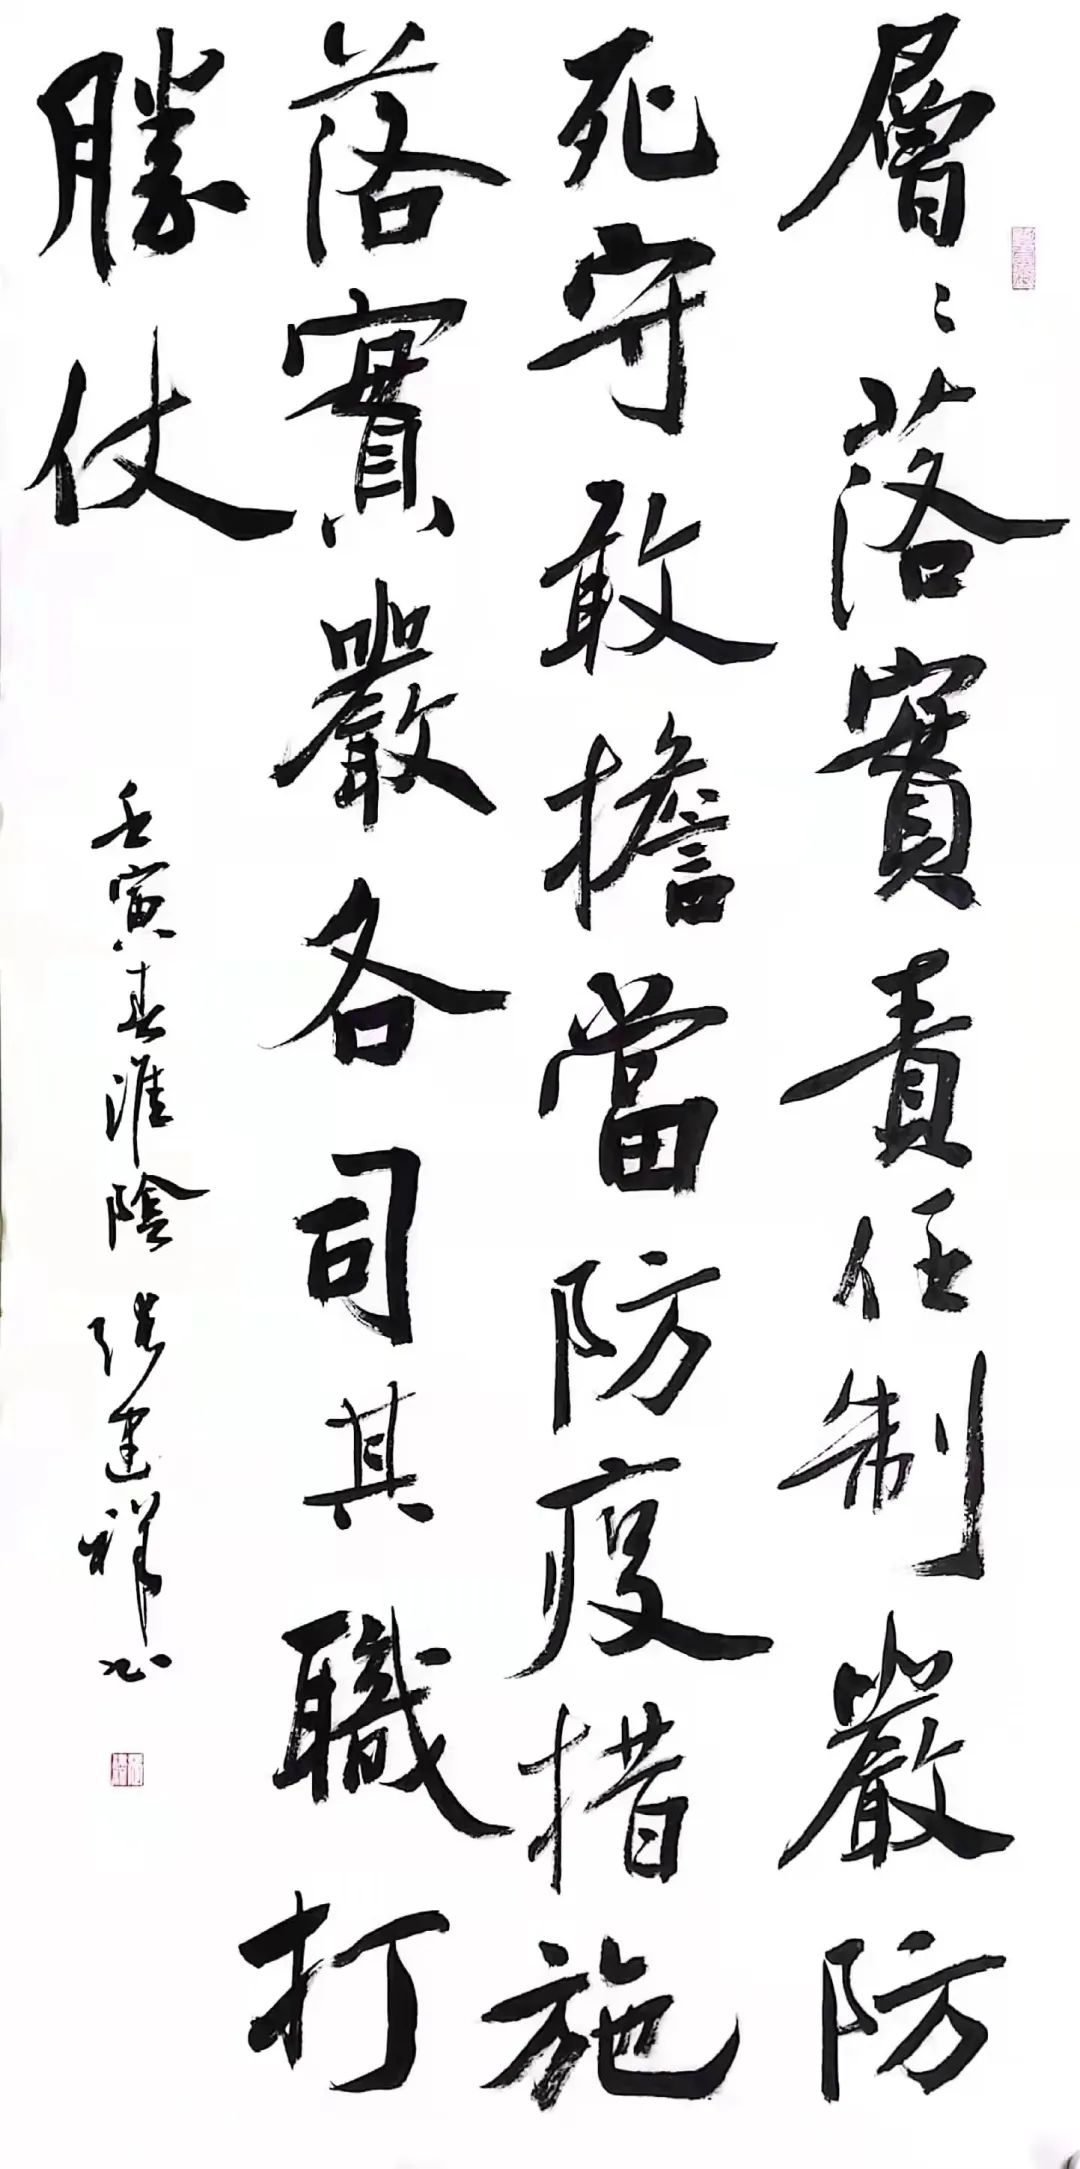 層〻落實責任制嚴防
死守敢擔當防疫措施
落實嚴各司其職打
勝仗
壬寅春淮陰張建祥書